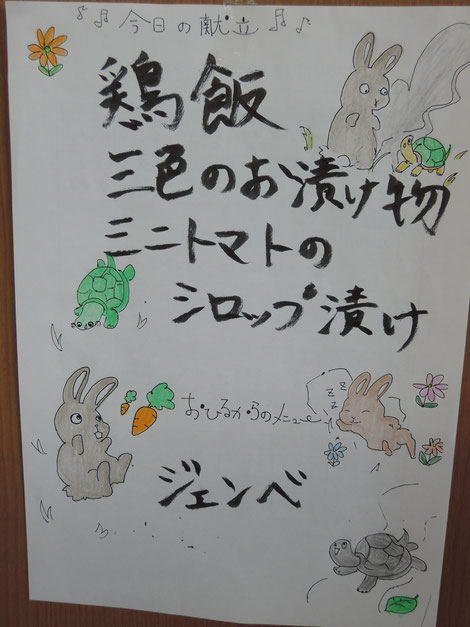 今日の献立
鶏飯
三色のお漬け物
ミニトマトの
シロップ漬け
zzz
おひるからのメニュー
ジェンベ